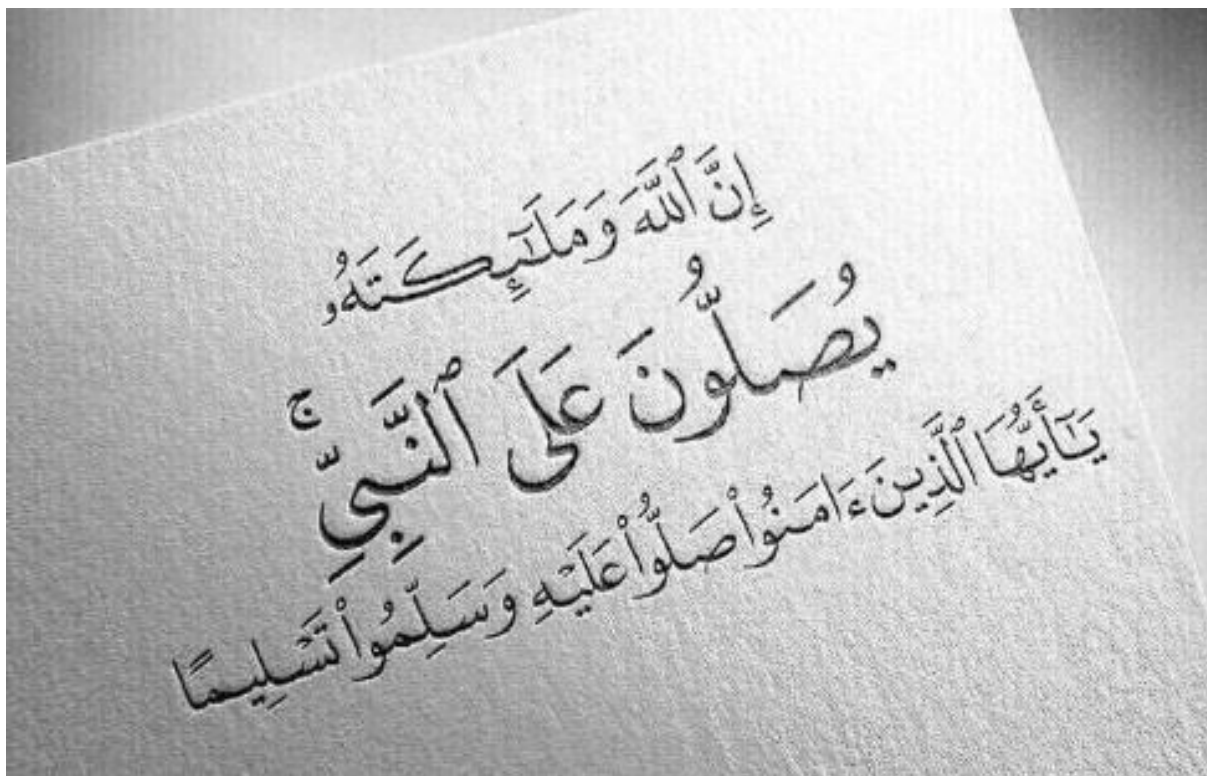 إِنَّ ٱللَّهَ وَمَلَـٰٓئِكَتَهُۥ
يُصَلُّونَ عَلَى ٱلنَّبِىِّ ۚ
يَـٰٓأَيُّهَا ٱلَّذِينَ ءَامَنُوا۟ صَلُّوا۟ عَلَيْهِ وَسَلِّمُوا۟ تَسْلِيمًا